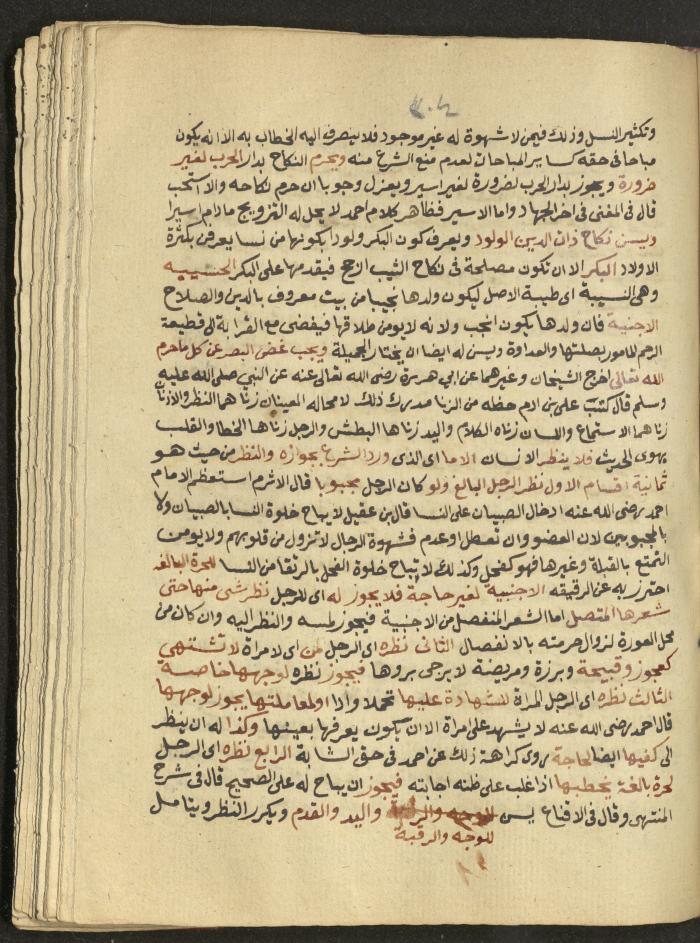 وتكثير النسل وذلك فيمن لا شهوة له غير موجود فلا ينصرف اليه الخطاب به الا انه يكون
مباحا في حقه كساير المباحات لعدم منع الشرع منه ويحرم النكاح بدار الحرب لغير
ضرورة ويجوز بدار الحرب لضرورة لغير اسير ويعزل وجوبا ان حرم نكاحه والا استحب
قال في المغني في اخر الجهاد واما الاسير فظاهر كلام احمد لا يحل له التزويج ما دام اسيرا
ويسن نكاح ذات الدين الولود ويعرف كون البكر ولودا بكونها من نسا يعرفن بكثرة
الاولاد البكر الا ان تكون مصلحة في نكاح الثيب ارجح فيقدمها على البكر الحسيبه
وهي النسيبة اي طيبة الاصل ليكون ولدها نجيبا من بيت معروف بالدين والصلاح
الاجنبية فان ولدها يكون انجب ولانه لا يومن طلاقها فيفضي مع القرابة الى قطيعة
الرحم المامور بصلتها والعداوة ويسن له ايضا ان يختار الجميلة ويجب غض البصر عن كل ما حرم
الله تعالى اخرج الشيخان وغيرهما عن ابي هريرة رضى الله تعالى عنه عن النبي صلى الله عليه
وسلم قال كتب على بن ادم حظه من الزنا مدرك ذلك لا محاله العينان زناهما النظر والاذنان
زناهما الاستماع واللسان زناه الكلام واليد زناها البطش والرجل زناها الخطا والقلب
يهوى الحديث فلا ينظر الانسان الا ما اي الذي ورد الشرع بجوازه والنظر من حيث هو
ثمانية اقسام الاول نظر الرجل البالغ ولو كان الرجل مجبوبا قال الاثرم استعظم الامام
احمد رضى الله عنه ادخال الخصيان على النسا قال بن عقيل لا يباح خلوة النسا بالخصيان ولا
بالمجبوبين لان العضو وان تعطل او عدم فشهوة الرجال لا تزول من قلوبهم ولا يومن
التمتع بالقبلة وغيرها فهو كفحل وكذلك لا يباح خلوة الفحل بالرتقا من النسا للحرة البالغة
احترز به عن الرقيقه الاجنبية لغير حاجة فلا يجوز له اي للرجل نظر شى منها حتى
شعرها المتصل اما الشعر المنفصل من الاجنبية فيجوز لمسه والنظر اليه وان كان من
محل العورة لزوال حرمته بالانفصال الثاني نظره اي الرجل لمن اي لامراة لا تشتهي
كعجوز وقبيحة وبرزة ومريضة لا يرجى بروها فيجوز نظره لوجهها خاصة
الثالث نظره اي الرجل المراة للشهادة عليها تحملا وادا او لمعاملتها يجوز لوجهها
قال احمد رضى الله عنه لا يشهد على امراة الا ان يكون يعرفها بعينها وكذا له ان ينظر
الى كفيها ايضا لحاجة روى كراهة ذلك عن احمد في حق الشابة الرابع نظره اي الرجل
لحرة بالغة يخطبها اذا غلب على ظنه اجابته فيجوز ان يباح له على الصحيح قال في شرح
المنتهى وقال في الاقناع يسن للوجه والرقبة واليد والقدم ويكرر النظر ويتامل
للوجه والرقبة